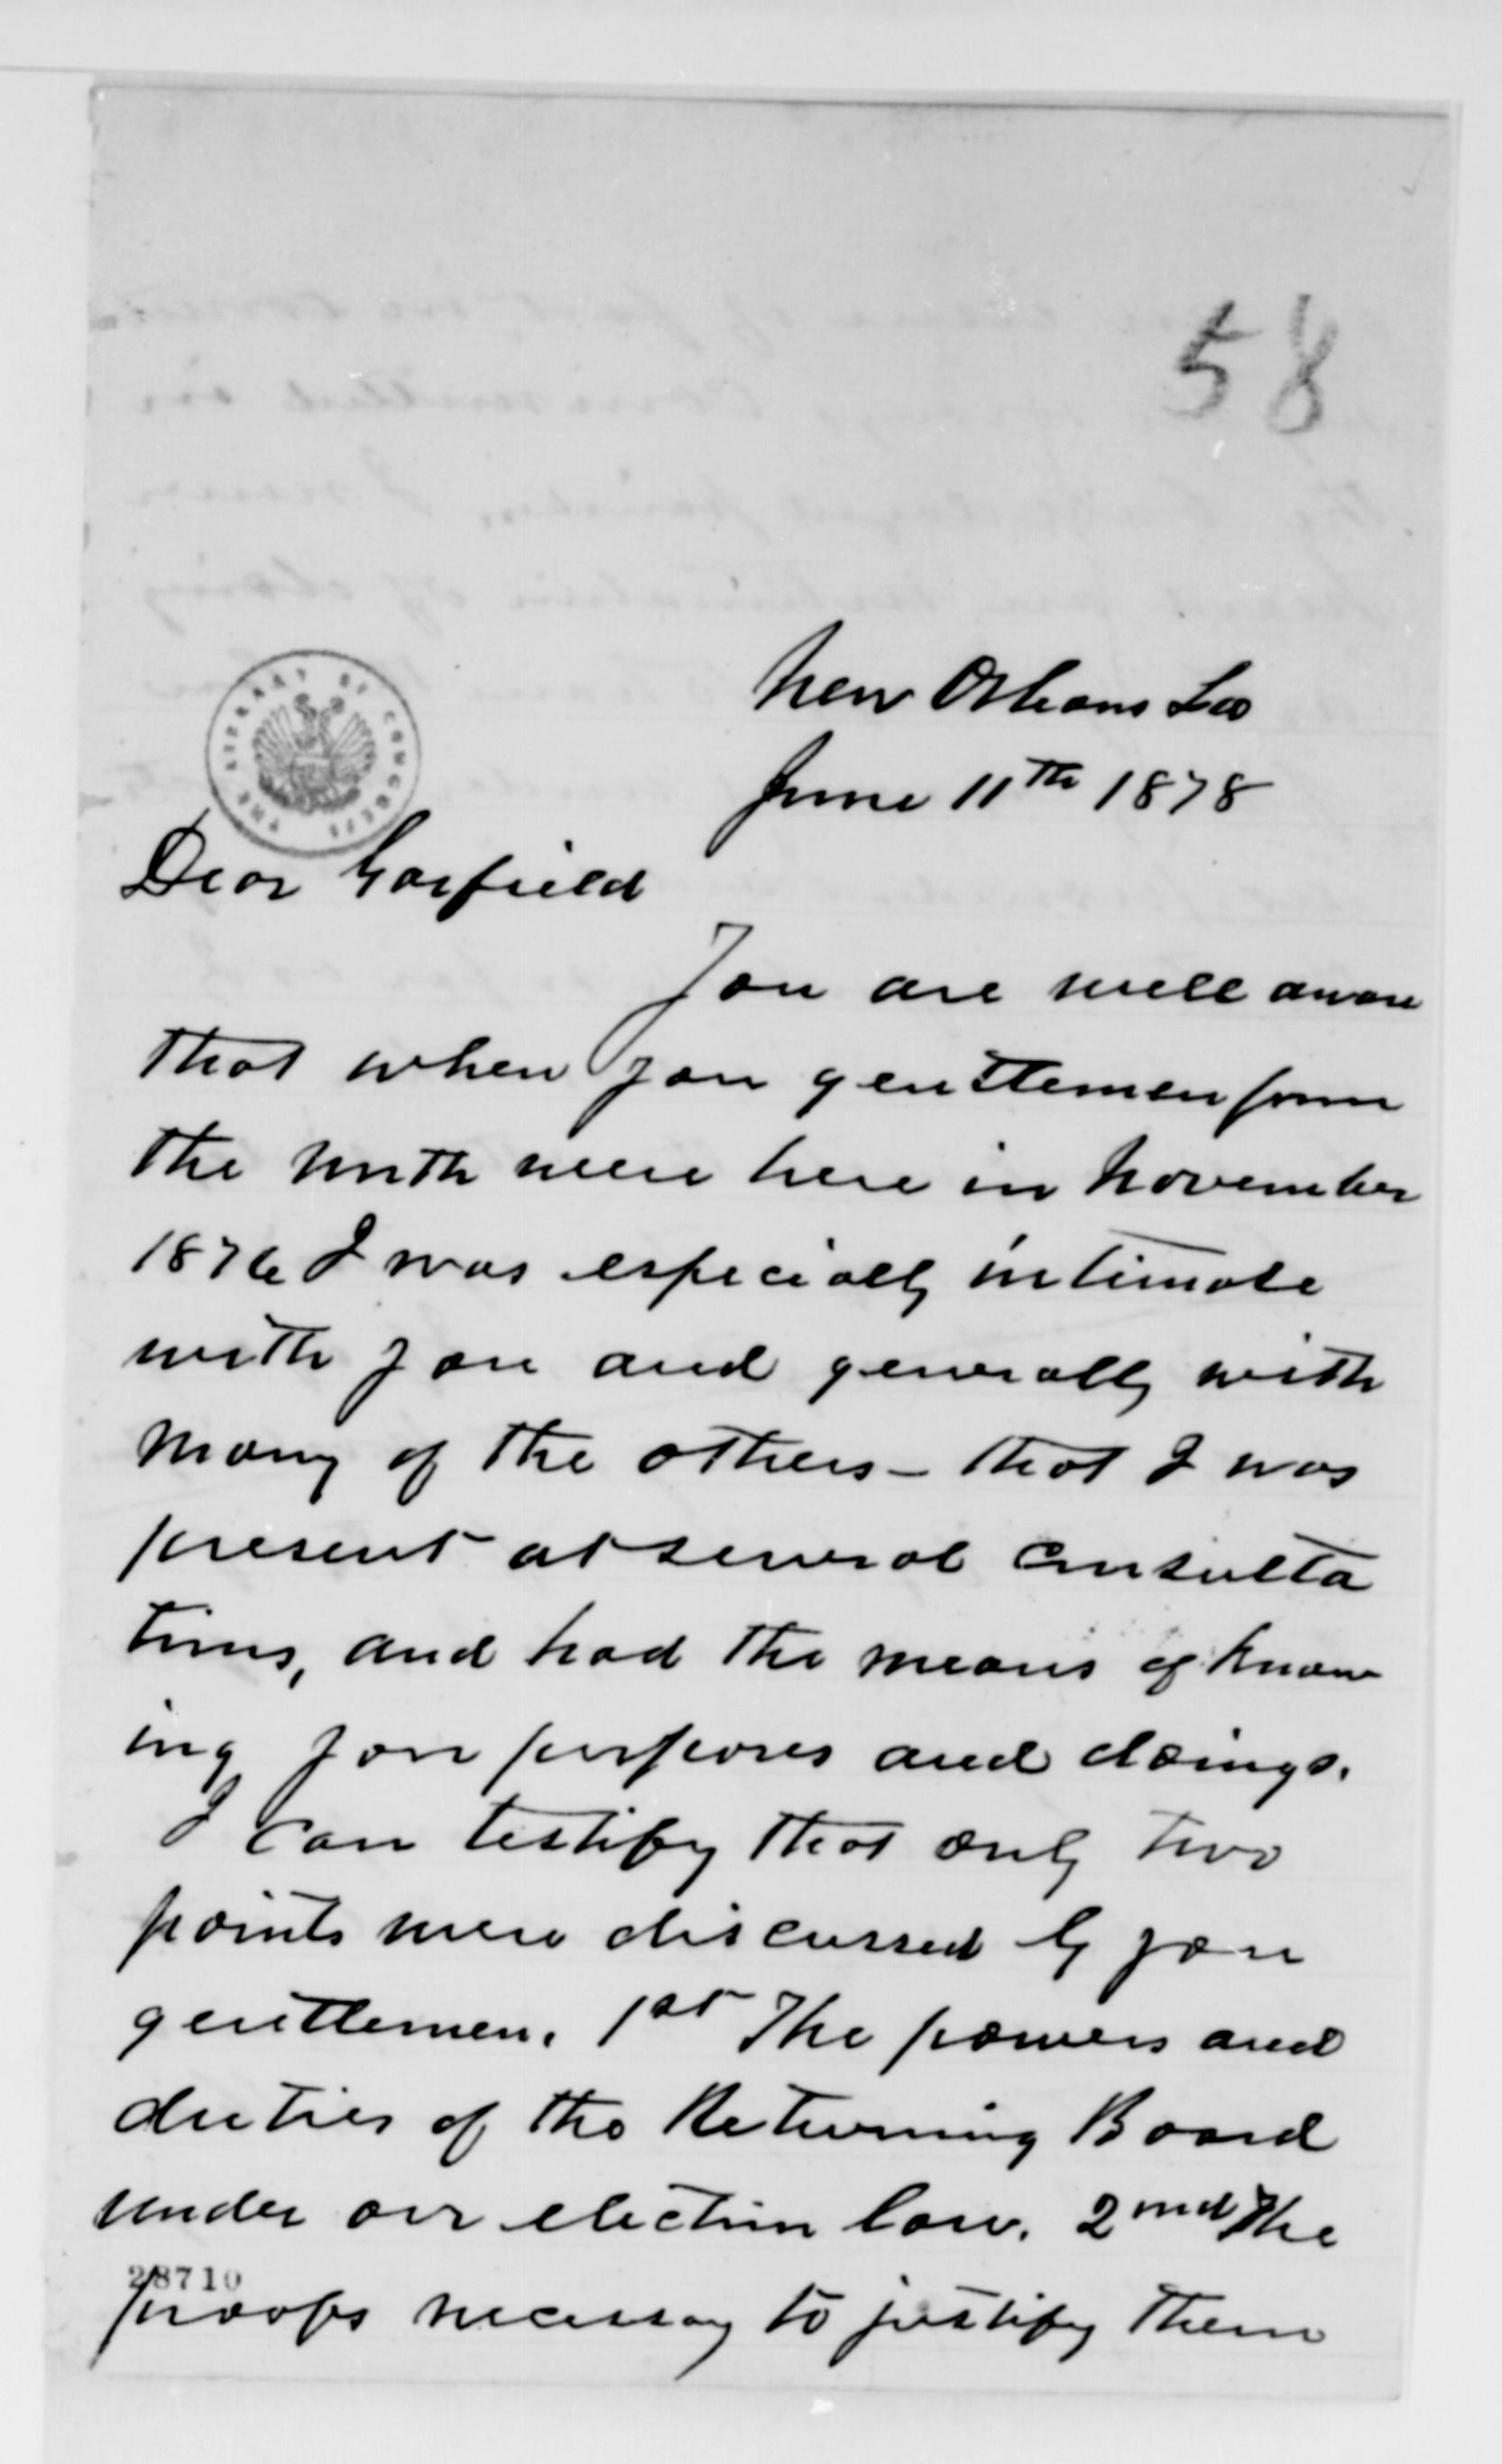 58
THE LIBRARY OF CONGRESS
New Orleans La
June 11th 1878
Dear Garfield
You are well aware
that when you gentlemen from
the North were here in November
1876 I was especially intimate
with you and generally with
many of the others – that I was
present at several consulta
tions, and had the means of know
ing your purposes and doings.
I can testify that only two
points were discussed by you
gentlemen. 1st The powers and
duties of the Returning Board
under our election law. 2nd The
28710
proofs necessary to justify them